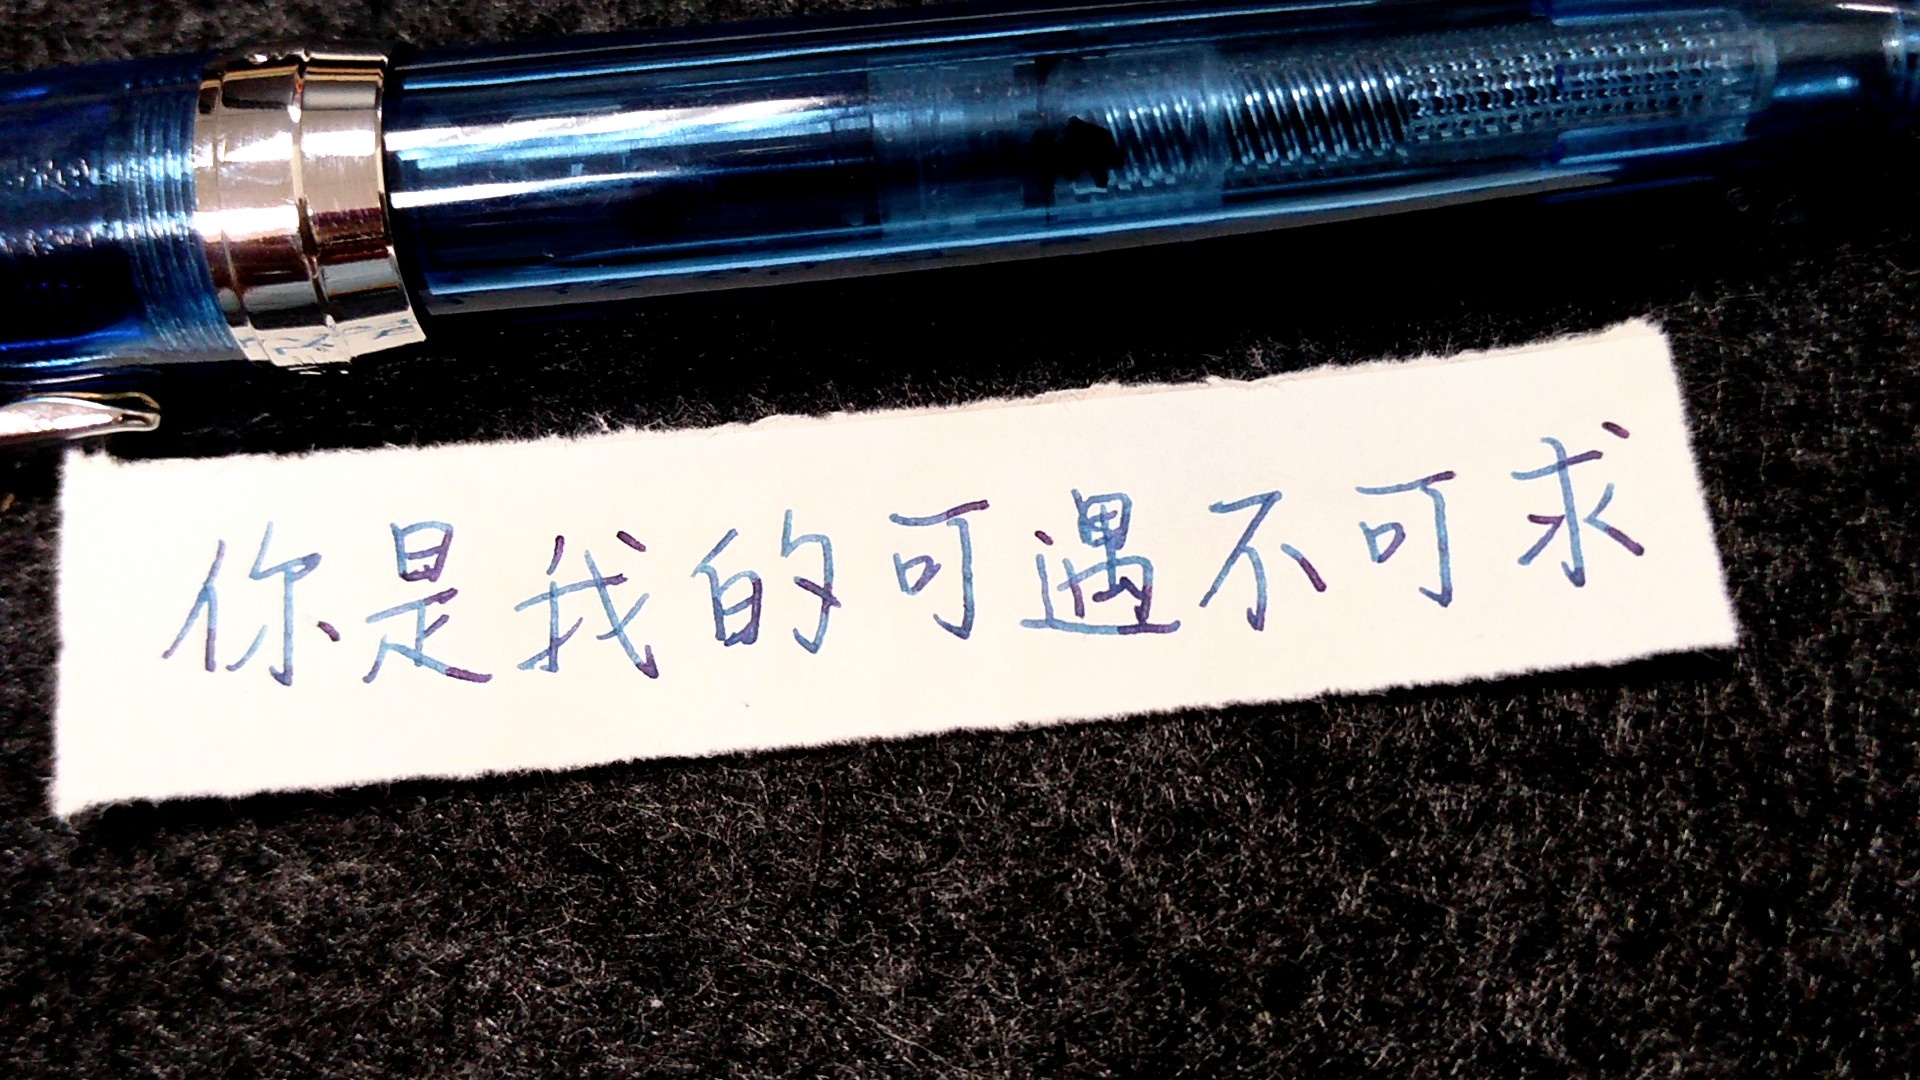 你是我的可遇不可求